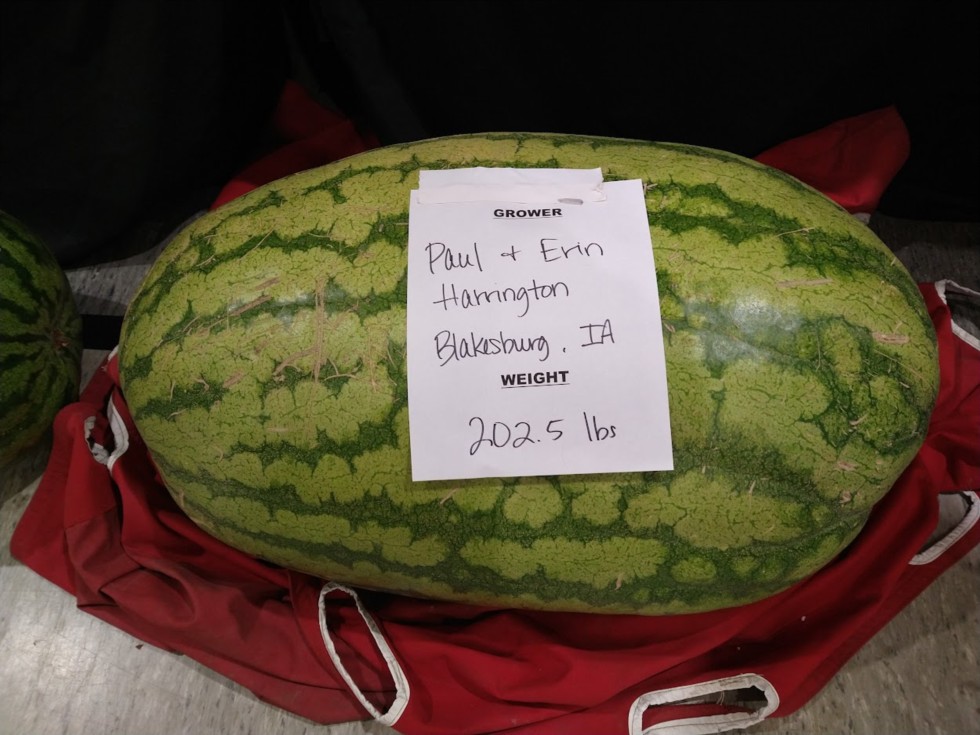 GROWER
Paul + Erin
Harrington
Blakesburg, IA
WEIGHT
202.5 lbs